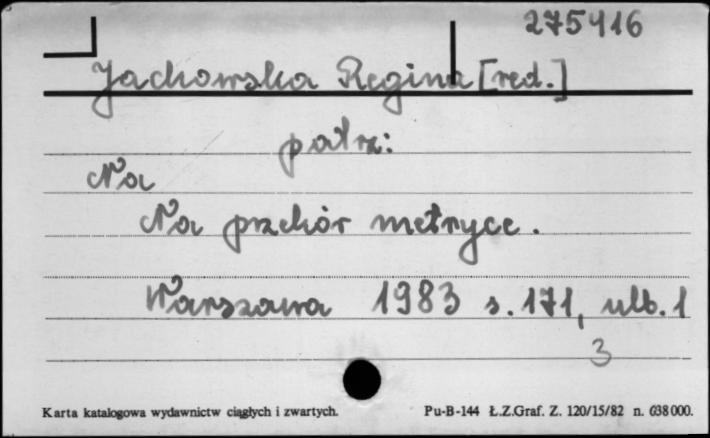 275416
Jachowska Regina [red.]
patrz:
Na
Na przekór metryce.
Warszawa 1983 s. 171, nlb. 1
3
Karta katalogowa wydawnictw ciągłych i zwartych. Pu-B-144 Ł.Z.Graf. Z. 120/15/82 n. 638000.